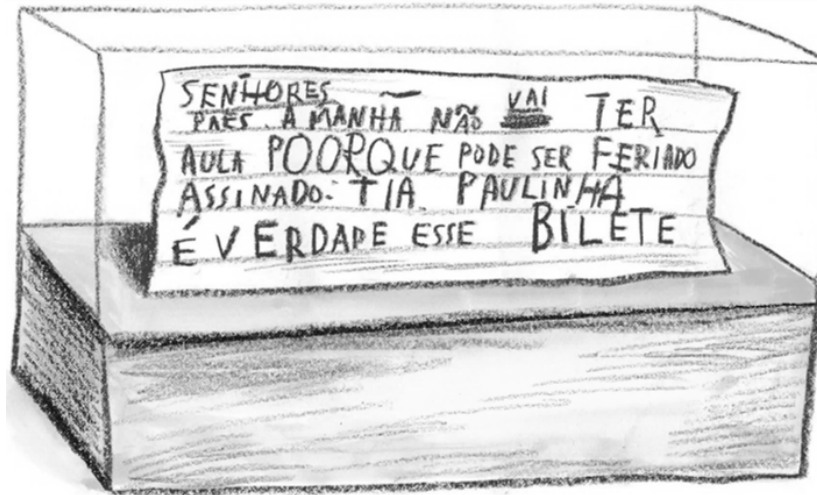 SENHORES
PAES. A MANHÃ NÃO VAI TER
AULA POORQUE PODE SER FERIADO
ASSINADO: TIA. PAULINHA
É VERDADE ESSE BILETE